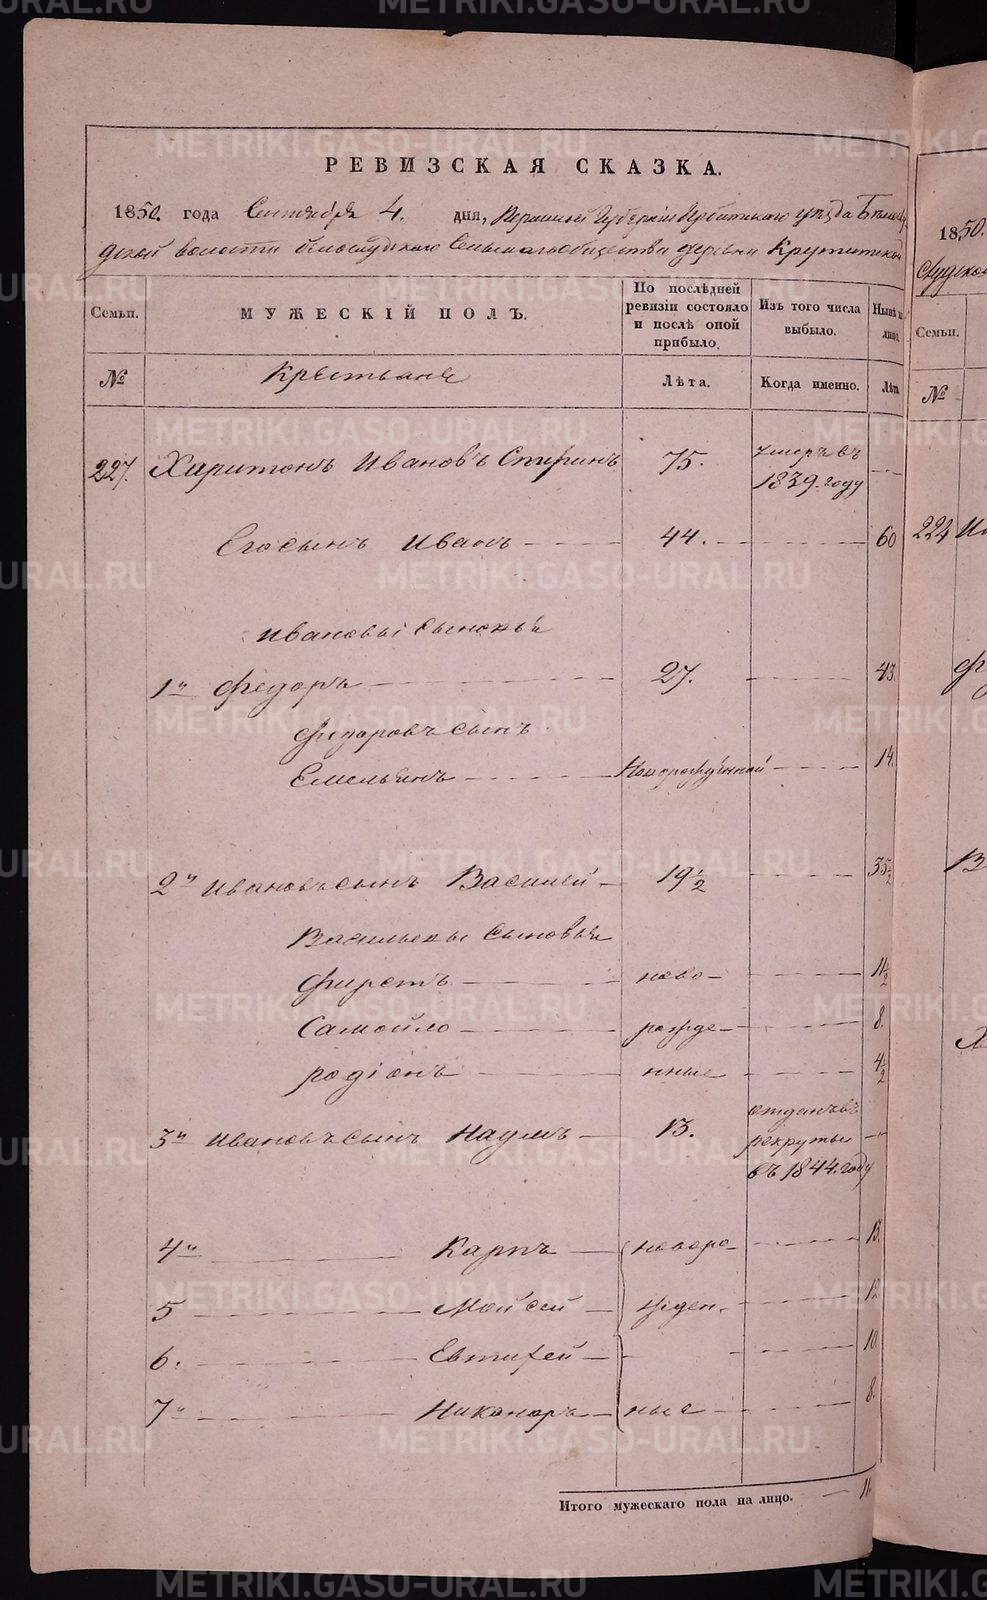 РЕВИЗСКАЯ СКАЗКА.
1850. года Сентября 4. дня, Пермской Губернiи Ирбитскаго уезда Белослу
дской волости белослудскаго Сельскаго общества деревни Крутитской
Семьи.
МУЖЕСКІЙ ПОЛЪ.
По послѣдней ревизіи состояло и послѣ оной прибыло.
Изъ того числа выбыло.
Нынѣ на лицо.
№
Крестьяне
Лѣта.
Когда именно.
Лѣта
227. Харитонъ Ивановъ Спиринъ 75. умеръ въ 1839. году
Его сынъ Иванъ 44. 60
Ивановы сыновья
1й Федоръ 27. 43.
Федоровъ сынъ
Емельянъ Новорожденной 14.
2й Ивановъ сынъ Василей 19 1/2 35 1/2
Васильевы сыновья
Фирстъ ново 11 1/2
Самойло рожде 8.
родiонъ нные 4 1/2
3й Ивановъ сынъ Наумъ 13. отданъ въ рекруты въ 1844. году
4й Карпъ новоро 13.
5 Мойсей жден. 12.
6. Евтифей 10.
7й Никаноръ ные 8.
Итого мужескаго пола на лицо. 11.
1850.
Слудской
Семьи.
№
224 Ив
METRIKI.GASO-URAL.RU